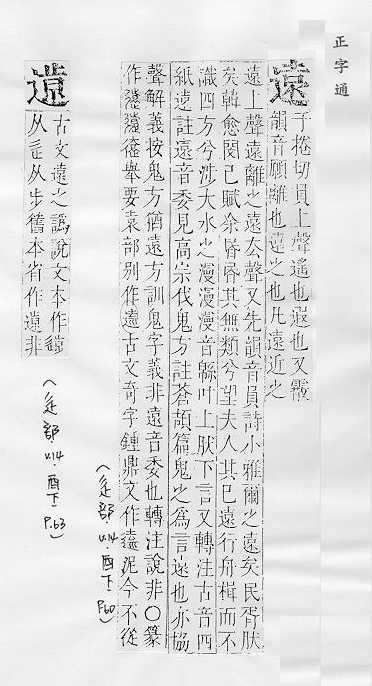 正字通
遠
于捲切員上聲遙也遐也又霰
韻音願離也遠之也凡遠近之
遠上聲遠離之遠去聲又先韻音員詩小雅爾之遠矣民胥肰
矣韓愈閔己賦余昏昏其無類兮望夫人其已遠行舟楫而不
識四方兮涉大水之漫漫漫音緜叶上肰下言又轉注古音四
紙遠註遠音委見高宗伐鬼方註蒼頡篇鬼之爲言遠也亦協
聲解義按鬼方猶遠方訓鬼字義非遠音委也轉注說非○篆
作舉要袁部別作古文奇字鍾鼎文作泥今不從
(辵部 v.14·酉下 P.60)
古文遠之譌說文本作
从辵从步舊本省作非
(辵部 v.14·酉下 P.63)